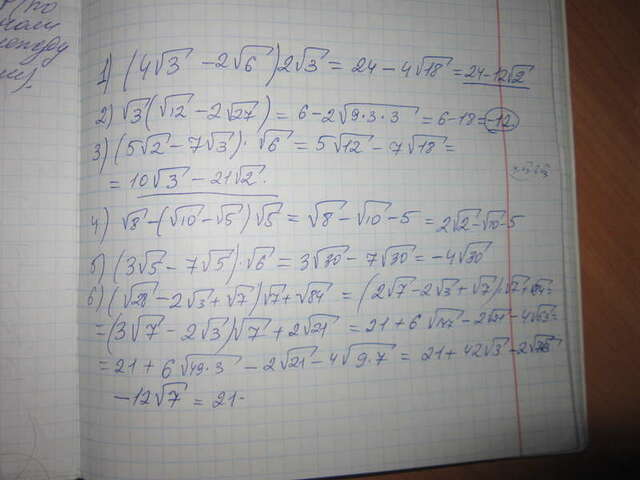 1) (4√3 - 2√6)2√3 = 24 - 4√18 = 24-12√2
2) √3(√12 - 2√27) = 6 - 2√9·3·3 = 6-18 = -12
3) (5√2 - 7√3)·√6 = 5√12 - 7√18 =
= 10√3 - 21√2.
4) √8 - (√10 - √5)√5 = √8 - √10 - 5 = 2√2 - √10 - 5
5) (3√5 - 7√5)·√6 = 3√30 - 7√30 = -4√30
6) (√28 - 2√3 + √7)√7 + √84 = (2√7 - 2√3 + √7)√7 + √84 =
= (3√7 - 2√3)√7 + 2√21 = 21 + 6 - 2√21 - 4√63 =
= 21 + 6√49·3 - 2√21 - 4√9·7 = 21 + 42√3 - 2
- 12√7 = 21